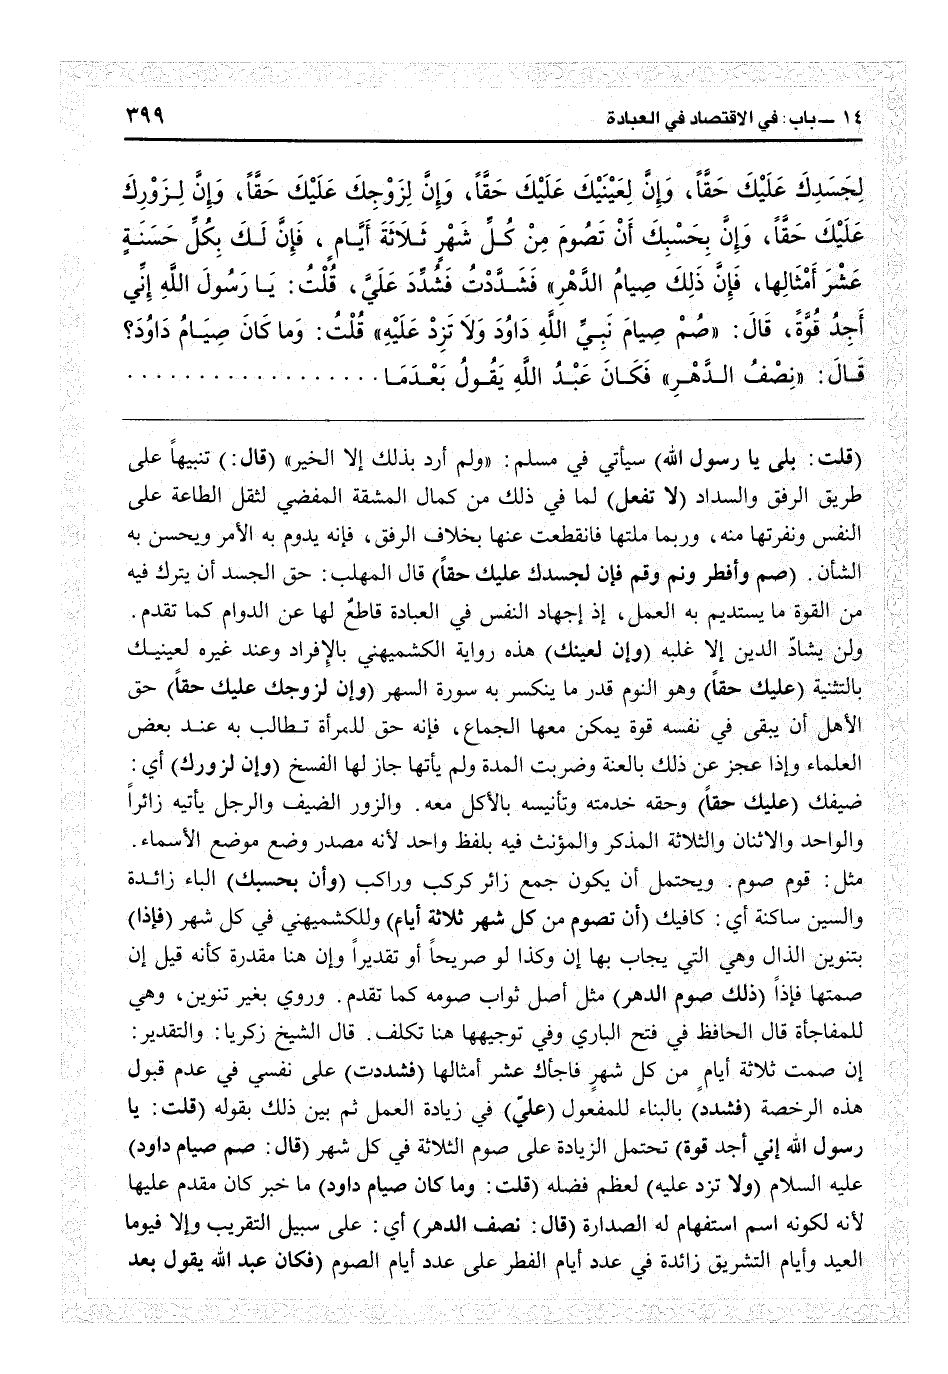 ١٤ ــ باب: في الاقتصاد في العبادة
٣٩٩
لِجَسَدِكَ عَلَيْكَ حَقّاً، وَإِنَّ لِعَيْنَيْكَ عَلَيْكَ حَقّاً، وَإِنَّ لِزَوْجِكَ عَلَيْكَ حَقّاً، وَإِنَّ لِزَوْرِكَ
عَلَيْكَ حَقّاً، وَإِنَّ بِحَسْبِكَ أَنْ تَصُومَ مِنْ كُلِّ شَهْرٍ ثَلَاثَةَ أَيَّامٍ، فَإِنَّ لَكَ بِكُلِّ حَسَنَةٍ
عَشْرَ أَمْثَالِها، فَإِنَّ ذَلِكَ صِيامُ الدَّهْرِ» فَشَدَّدْتُ فَشُدِّدَ عَلَيَّ، قُلْتُ: يَا رَسُولَ اللَّهِ إِنِّي
أَجِدُ قُوَّةً، قَالَ: «صُمْ صِيامَ نَبِيِّ اللَّهِ دَاوُدَ وَلَا تَزِدْ عَلَيْهِ» قُلْتُ: وَما كَانَ صِيَامُ دَاوُدَ؟
قَالَ: «نِصْفُ الدَّهْرِ» فَكَانَ عَبْدُ اللَّهِ يَقُولُ بَعْدَمَا . . . . . . . . . . . . . . . . .
(قلت: بلى يا رسول الله) سيأتي في مسلم: «ولم أرد بذلك إلا الخير» (قال:) تنبيهاً على
طريق الرفق والسداد (لا تفعل) لما في ذلك من كمال المشقة المفضي لثقل الطاعة على
النفس ونفرتها منه، وربما ملتها فانقطعت عنها بخلاف الرفق، فإنه يدوم به الأمر ويحسن به
الشأن. (صم وأفطر ونم وقم فإن لجسدك عليك حقاً) قال المهلب: حق الجسد أن يترك فيه
من القوة ما يستديم به العمل، إذ إجهاد النفس في العبادة قاطعٌ لها عن الدوام كما تقدم.
ولن يشادّ الدين إلا غلبه (وإن لعينك) هذه رواية الكشميهني بالإفراد وعند غيره لعينيك
بالتثنية (عليك حقاً) وهو النوم قدر ما ينكسر به سورة السهر (وإن لزوجك عليك حقاً) حق
الأهل أن يبقى في نفسه قوة يمكن معها الجماع، فإنه حق للمرأة تطالب به عند بعض
العلماء وإذا عجز عن ذلك بالعنة وضربت المدة ولم يأتها جاز لها الفسخ (وإن لزورك) أي:
ضيفك (عليك حقاً) وحقه خدمته وتأنيسه بالأكل معه. والزور الضيف والرجل يأتيه زائراً
والواحد والاثنان والثلاثة المذكر والمؤنث فيه بلفظ واحد لأنه مصدر وضع موضع الأسماء.
مثل: قوم صوم. ويحتمل أن يكون جمع زائر كركب وراكب (وأن بحسبك) الباء زائدة
والسين ساكنة أي: كافيك (أن تصوم من كل شهر ثلاثة أيام) وللكشميهني في كل شهر (فإذا)
بتنوين الذال وهي التي يجاب بها إن وكذا لو صريحاً أو تقديراً وإن هنا مقدرة كأنه قيل إن
صمتها فإذاً (ذلك صوم الدهر) مثل أصل ثواب صومه كما تقدم. وروي بغير تنوين، وهي
للمفاجأة قال الحافظ في فتح الباري وفي توجيهها هنا تكلف. قال الشيخ زكريا: والتقدير:
إن صمت ثلاثة أيامٍ من كل شهرٍ فاجأك عشر أمثالها (فشددت) على نفسي في عدم قبول
هذه الرخصة (فشدد) بالبناء للمفعول (عليّ) في زيادة العمل ثم بين ذلك بقوله (قلت: يا
رسول الله إني أجد قوة) تحتمل الزيادة على صوم الثلاثة في كل شهر (قال: صم صيام داود)
عليه السلام (ولا تزد عليه) لعظم فضله (قلت: وما كان صيام داود) ما خبر كان مقدم عليها
لأنه لكونه اسم استفهام له الصدارة (قال: نصف الدهر) أي: على سبيل التقريب وإلا فيوما
العيد وأيام التشريق زائدة في عدد أيام الفطر على عدد أيام الصوم (فكان عبد الله يقول بعد